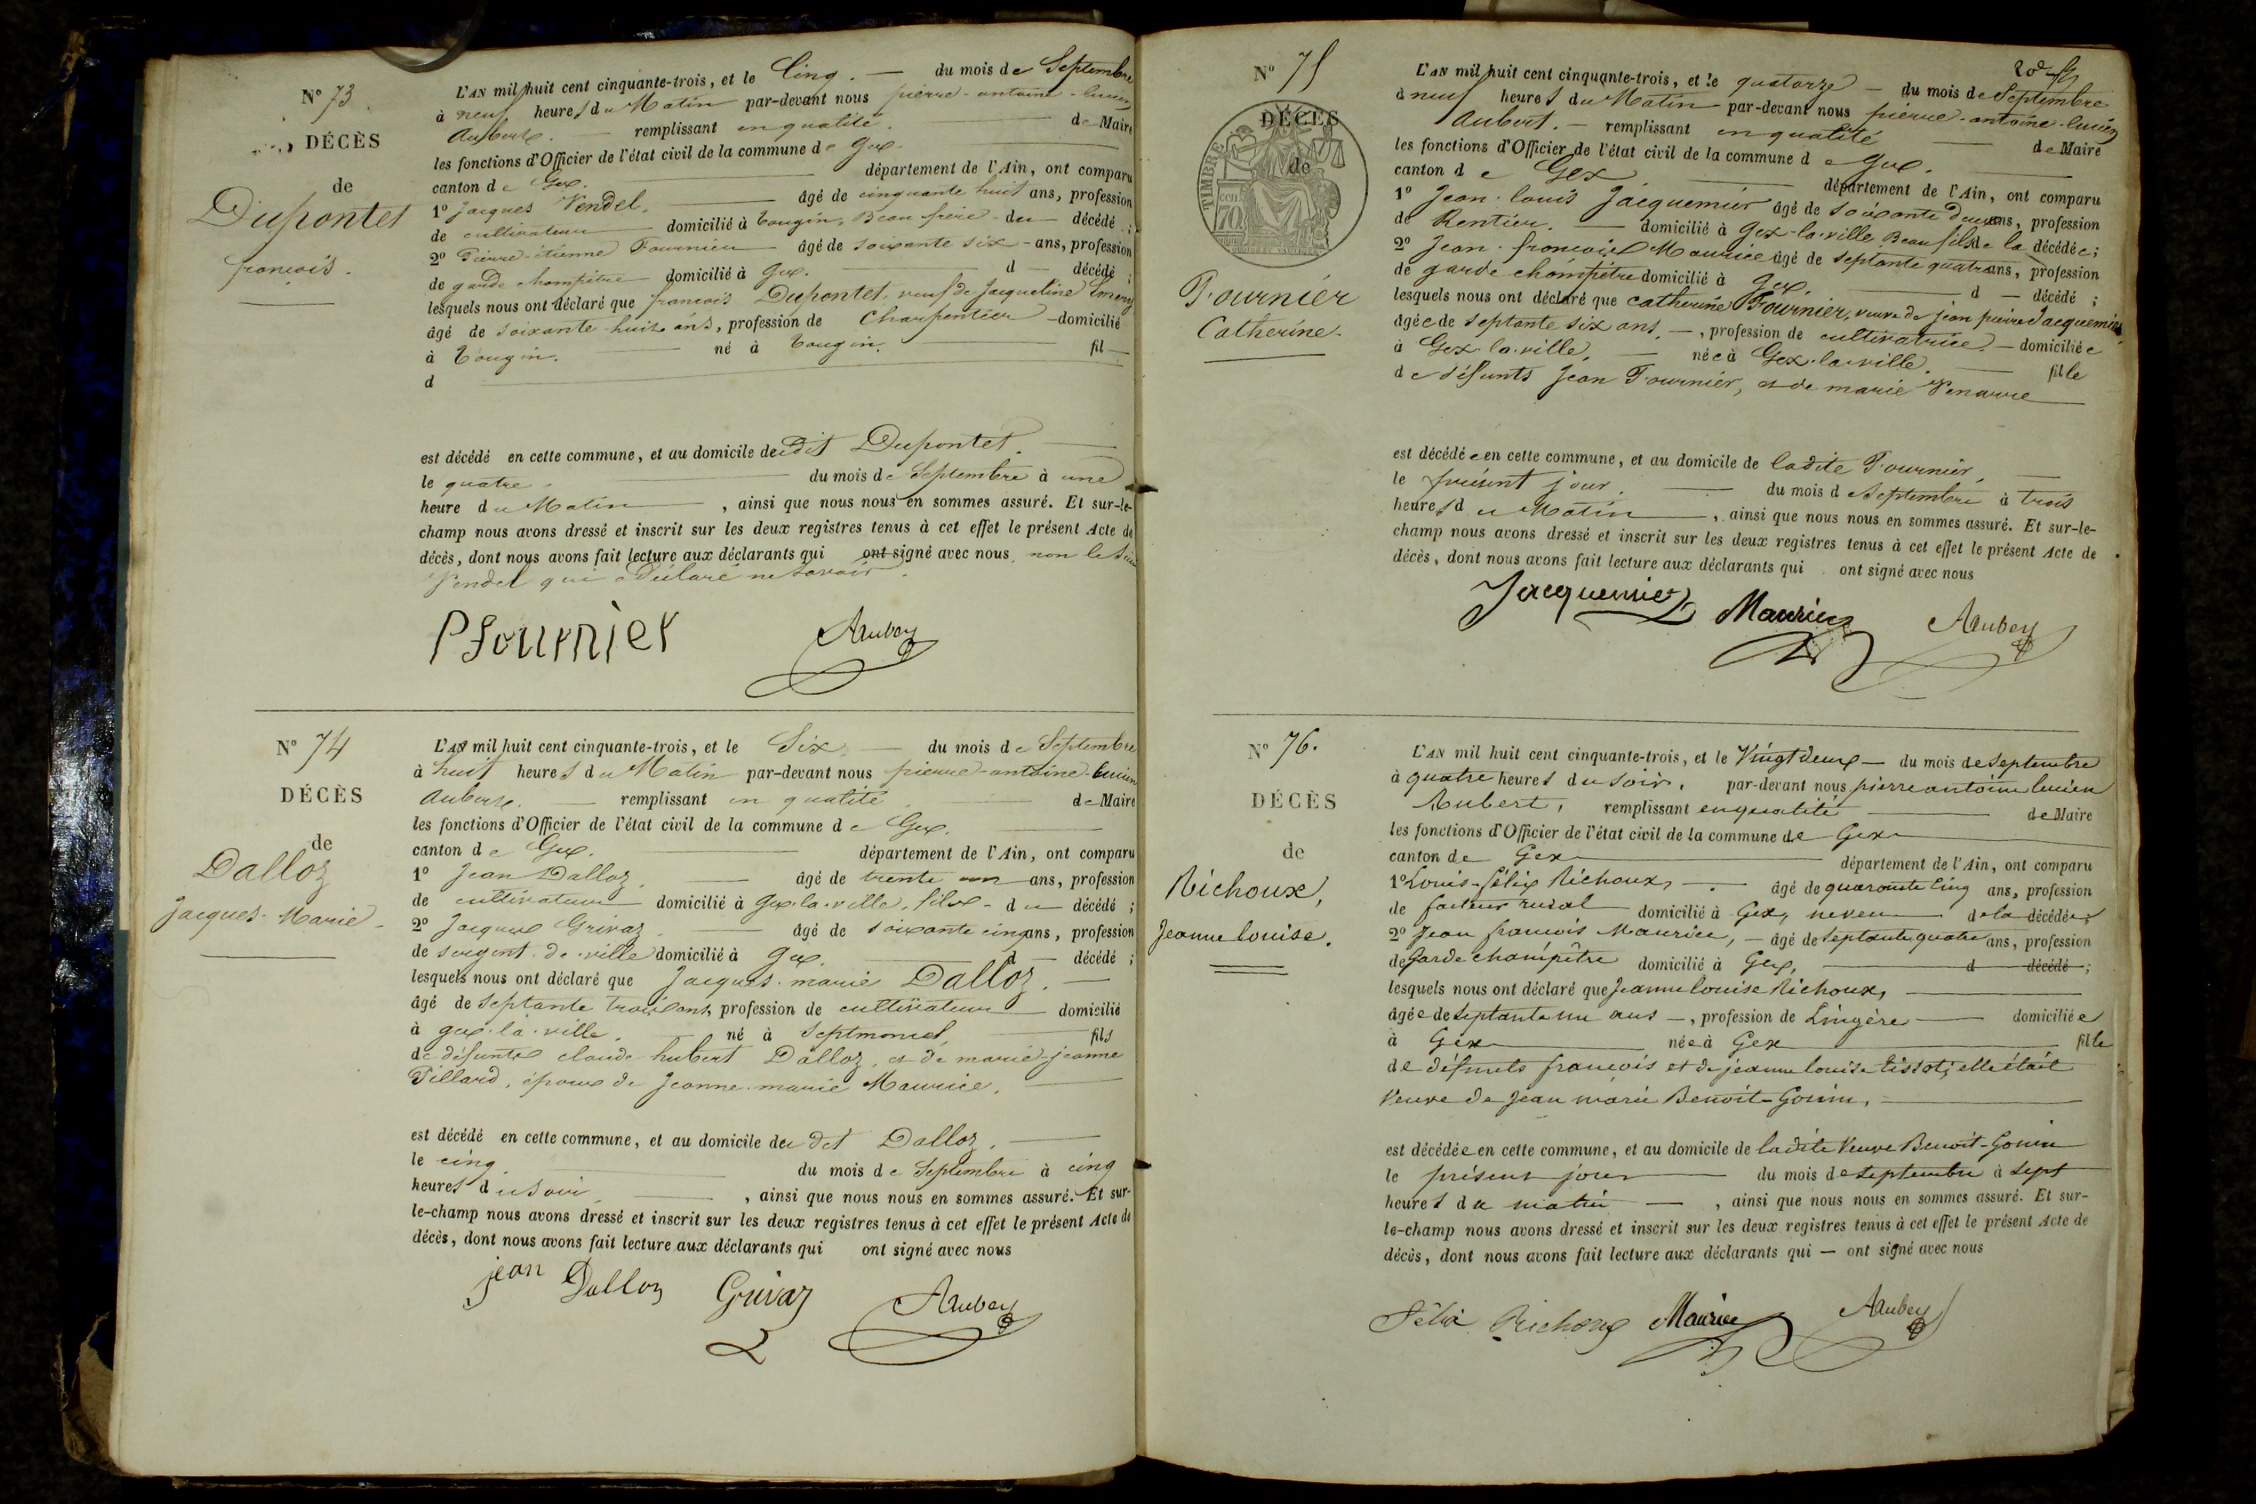 N° 73
DÉCÈS
de
Dupontet
françois.
L'AN mil huit cent cinquante-trois, et le Cinq. — du mois de Septembre
à neuf heures du Matin par-devant nous pierre-antoine-lucien
Aubert. — remplissant en qualité de Maire
les fonctions d'Officier de l'état civil de la commune de Gex.
canton de Gex. département de l'Ain, ont comparu
1° Jacques Vendel. âgé de cinquante huit ans, profession
de cultivateur domicilié à Tougin, Beau frère du décédé ;
2° Pierre-étienne Fournier âgé de soixante six ans, profession
de garde champêtre domicilié à Gex. d — décédé ;
lesquels nous ont déclaré que françois Dupontet, veuf de Jacqueline
âgé de soixante huit ans, profession de Charpentier domicilié
à Tougin. né à Tougin. fil
d
est décédé en cette commune, et au domicile dudit Dupontet.
le quatre. du mois de Septembre à une
heure du Matin, ainsi que nous nous en sommes assuré. Et sur-le-
champ nous avons dressé et inscrit sur les deux registres tenus à cet effet le présent Acte de
décès, dont nous avons fait lecture aux déclarants qui ont signé avec nous, non le dit
Vendel qui a Déclaré ne Savoir.
Pfournier Aubert
N° 74
DÉCÈS
de
Dalloz
Jacques-Marie
L'AN mil huit cent cinquante-trois, et le Six — du mois de Septembre
à huit heures du Matin par-devant nous pierre-antoine-lucien
Aubert. — remplissant en qualité de Maire
les fonctions d'Officier de l'état civil de la commune de Gex.
canton de Gex. département de l'Ain, ont comparu
1° Jean Dalloz. âgé de trente un ans, profession
de cultivateur domicilié à Gex-la-ville, fils du décédé ;
2° Jacques Grivaz. âgé de soixante cinq ans, profession
de sergent de ville domicilié à Gex. d — décédé ;
lesquels nous ont déclaré que Jacques-marie Dalloz.
âgé de septante trois ans, profession de cultivateur domicilié
à gex-la-ville. né à Septmoncel, fils
de défunts claude-hubert Dalloz, et de marie-jeanne
Pillard, époux de Jeanne-marie Maurice.
est décédé en cette commune, et au domicile du dit Dalloz.
le cinq. du mois de Septembre à cinq
heures du soir, ainsi que nous nous en sommes assuré. Et sur-
le-champ nous avons dressé et inscrit sur les deux registres tenus à cet effet le présent Acte de
décès, dont nous avons fait lecture aux déclarants qui ont signé avec nous
jean Dalloz Grivaz Aubert
N° 75
DÉCÈS
de
TIMBRE
70
Fournier
Catherine.
L'AN mil huit cent cinquante-trois, et le quatorze — du mois de Septembre
à neuf heures du Matin par-devant nous pierre-antoine-lucien
Aubert. — remplissant en qualité de Maire
les fonctions d'Officier de l'état civil de la commune de Gex.
canton de Gex département de l'Ain, ont comparu
1° Jean-louis Jacquemier âgé de soixante deux ans, profession
de Rentier. domicilié à Gex-la-ville Beau fils de la décédée ;
2° Jean-françois Maurice âgé de septante quatre ans, profession
de garde champêtre domicilié à Gex. d — décédé ;
lesquels nous ont déclaré que catherine Fournier, veuve de jean pierre Jacquemier,
âgée de septante six ans, profession de cultivatrice domiciliée
à Gex-la-ville. née à Gex-la-ville. fille
de défunts Jean Fournier, et de marie
est décédée en cette commune, et au domicile de ladite Fournier,
le présent jour. du mois de Septembre à trois
heures du Matin, ainsi que nous nous en sommes assuré. Et sur-le-
champ nous avons dressé et inscrit sur les deux registres tenus à cet effet le présent Acte de
décès, dont nous avons fait lecture aux déclarants qui ont signé avec nous
Jacquemier Maurice Aubert
N° 76.
DÉCÈS
de
Richoux,
Jeanne louise.
L'AN mil huit cent cinquante-trois, et le Vingt deux — du mois de septembre
à quatre heures du soir, par-devant nous pierre antoine lucien
Aubert, remplissant en qualité de Maire
les fonctions d'Officier de l'état civil de la commune de Gex
canton de Gex département de l'Ain, ont comparu
1° Louis-félix Richoux, âgé de quarante cinq ans, profession
de facteur rural domicilié à Gex, neveu de la décédée ;
2° Jean françois Maurice, âgé de septante quatre ans, profession
de Garde champêtre domicilié à Gex, d décédé ;
lesquels nous ont déclaré que Jeanne louise Richoux,
âgée de septante un ans, profession de Lingère domiciliée
à Gex née à Gex fille
de défunts françois et de jeanne louise tissot; elle était
Veuve de Jean marie Benoit-Gonin,
est décédée en cette commune, et au domicile de ladite Veuve Benoit-Gonin
le présent jour du mois de septembre à sept
heures du matin, ainsi que nous nous en sommes assuré. Et sur-
le-champ nous avons dressé et inscrit sur les deux registres tenus à cet effet le présent Acte de
décès, dont nous avons fait lecture aux déclarants qui — ont signé avec nous
Félix Richoux Maurice Aubert